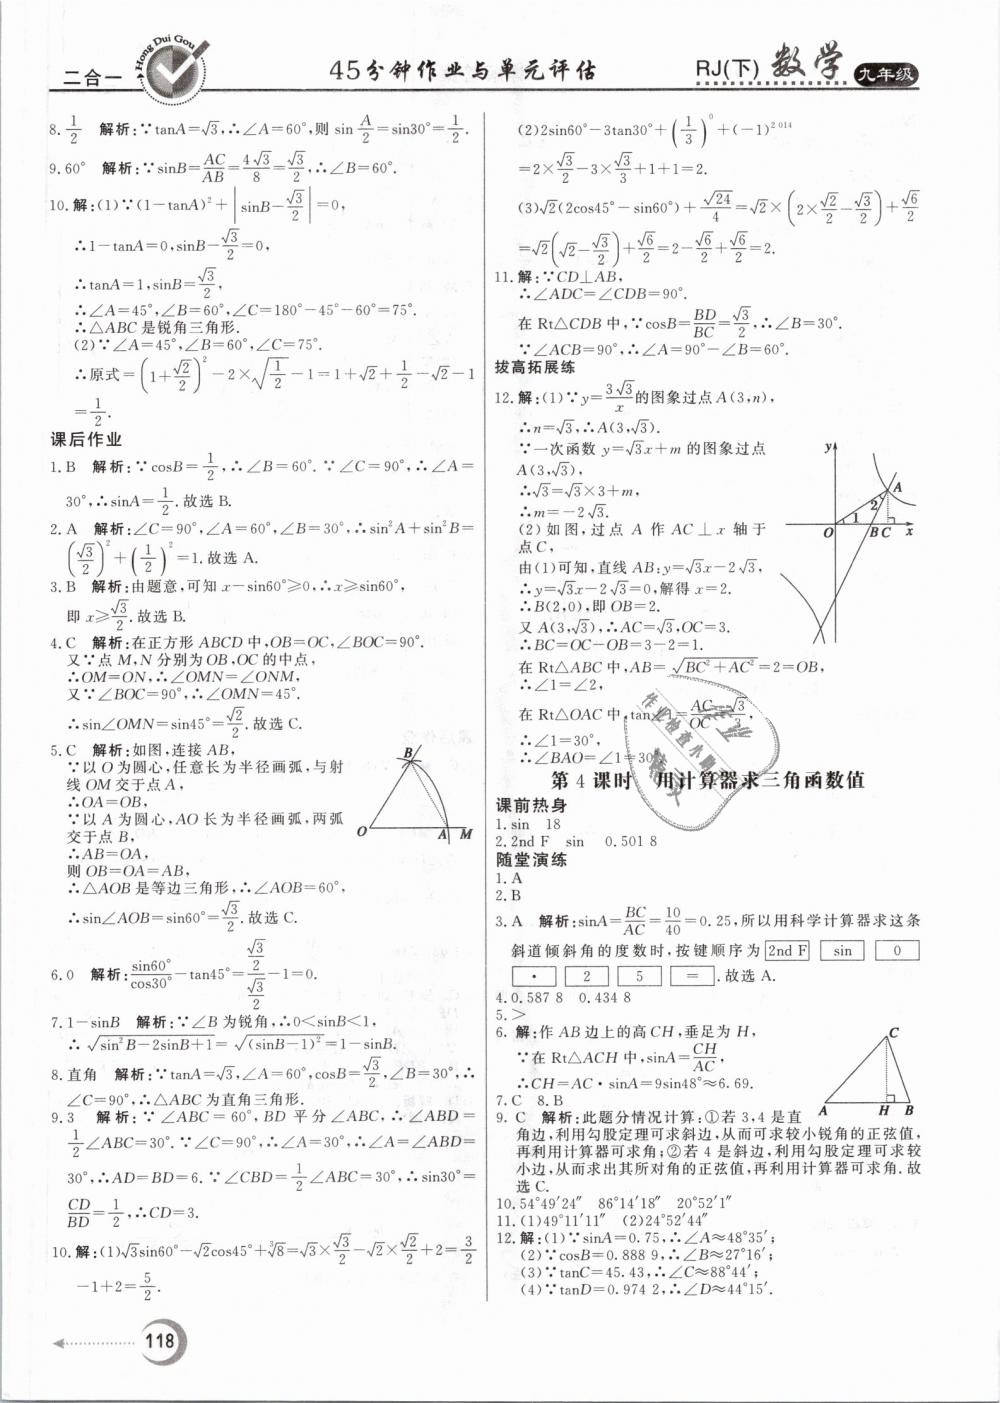 二合一
Hong Dui Gou
45分钟作业与单元评估
RJ(下) 数学 九年级
8. 1/2 解析:∵tanA=√3,∴∠A=60°,则 sin A/2=sin30°=1/2.
9.60° 解析:∵sinB=AC/AB=4√3/8=√3/2,∴∠B=60°.
10.解:(1)∵(1-tanA)²+|sinB-√3/2|=0,
∴1-tanA=0,sinB-√3/2=0,
∴tanA=1,sinB=√3/2,
∴∠A=45°,∠B=60°,∠C=180°-45°-60°=75°.
∴△ABC是锐角三角形.
(2)∵∠A=45°,∠B=60°,∠C=75°.
∴原式=(1+√2/2)²-2×√(1/2)-1=1+√2+1/2-√2-1
=1/2.
课后作业
1.B 解析:∵cosB=1/2,∴∠B=60°.∵∠C=90°,∴∠A=
30°,∴sinA=1/2.故选B.
2.A 解析:∠C=90°,∠A=60°,∠B=30°,∴sin²A+sin²B=
(√3/2)²+(1/2)²=1.故选 A.
3.B 解析:由题意,可知 x-sin60°⩾0,∴x⩾sin60°,
即 x⩾√3/2.故选 B.
4.C 解析:在正方形 ABCD 中,OB=OC,∠BOC=90°.
又∵点 M,N 分别为 OB,OC 的中点,
∴OM=ON,∴∠OMN=∠ONM,
又∵∠BOC=90°,∴∠OMN=45°.
∴sin∠OMN=sin45°=√2/2.故选 C.
5.C 解析:如图,连接 AB,
∵以 O 为圆心,任意长为半径画弧,与射
线 OM 交于点 A,
∴OA=OB,
∵以 A 为圆心,AO 长为半径画弧,两弧
交于点 B,
∴AB=OA,
则 OB=OA=AB,
∴△AOB 是等边三角形,∴∠AOB=60°,
∴sin∠AOB=sin60°=√3/2.故选 C.
B
O A M
6.0 解析:sin60°/cos30°-tan45°=(√3/2)/(√3/2)-1=0.
7.1-sinB 解析:∵∠B 为锐角,∴0<sinB<1,
∴√(sin²B-2sinB+1)=√((sinB-1)²)=1-sinB.
8.直角 解析:∵tanA=√3,∠A=60°,cosB=√3/2,∠B=30°,∴
∠C=90°,∴△ABC为直角三角形.
9.3 解析:∵∠ABC=60°,BD 平分∠ABC,∴∠ABD=
1/2∠ABC=30°.∵∠C=90°,∴∠A=30°,∴∠A=∠ABD=
30°,∴AD=BD=6.∵∠CBD=1/2∠ABC=30°,∴sin30°=
CD/BD=1/2,∴CD=3.
10.解:(1)√3sin60°-√2cos45°+∛8=√3×√3/2-√2×√2/2+2=3/2
-1+2=5/2.
118
(2)2sin60°-3tan30°+(1/3)⁰+(-1)²⁰¹⁴
=2×√3/2-3×√3/3+1+1=2.
(3)√2(2cos45°-sin60°)+√24/4=√2×(2×√2/2-√3/2)+√6/2
=√2(√2-√3/2)+√6/2=2-√6/2+√6/2=2.
11.解:∵CD⊥AB,
∴∠ADC=∠CDB=90°.
在 Rt△CDB 中,∵cosB=BD/BC=√3/2,∴∠B=30°.
∵∠ACB=90°,∴∠A=90°-∠B=60°.
拔高拓展练
12.解:(1)∵y=3√3/x的图象过点 A(3,n),
∴n=√3,∴A(3,√3).
∵一次函数 y=√3x+m 的图象过点
A(3,√3),
∴√3=√3×3+m,
∴m=-2√3.
(2)如图,过点 A 作 AC⊥x 轴于
点 C,
由(1)可知,直线 AB:y=√3x-2√3,
∴y=√3x-2√3=0,解得 x=2.
∴B(2,0),即 OB=2.
又 A(3,√3),∴AC=√3,OC=3.
∴BC=OC-OB=3-2=1.
在 Rt△ABC 中,AB=√(BC²+AC²)=2=OB,
∴∠1=∠2,
在 Rt△OAC 中,tan∠1=AC/OC=√3/3,
∴∠1=30°,
∴∠BAO=∠1=30°.
y A 2 1 O B C x
第 4 课时 用计算器求三角函数值
课前热身
1.sin 18
2.2nd F sin 0.501 8
随堂演练
1.A
2.B
3.A 解析:sinA=BC/AC=10/40=0.25,所以用科学计算器求这条
斜道倾斜角的度数时,按键顺序为 2nd F sin 0
· 2 5 = .故选 A.
4.0.587 8 0.434 8
5.>
6.解:作 AB 边上的高 CH,垂足为 H,
∵在 Rt△ACH 中,sinA=CH/AC,
∴CH=AC·sinA=9sin48°≈6.69.
C
A H B
7.C 8.B
9.C 解析:此题分情况计算:①若 3,4 是直
角边,利用勾股定理可求斜边,从而可求较小锐角的正弦值,
再利用计算器可求角;②若 4 是斜边,利用勾股定理可求较
小边,从而求出其所对角的正弦值,再利用计算器可求角.故
选 C.
10.54°49′24″ 86°14′18″ 20°52′1″
11.(1)49°11′11″ (2)24°52′44″
12.解:(1)∵sinA=0.75,∴∠A≈48°35′;
(2)∵cosB=0.888 9,∴∠B≈27°16′;
(3)∵tanC=45.43,∴∠C≈88°44′;
(4)∵tanD=0.974 2,∴∠D≈44°15′.
作业检查小助手